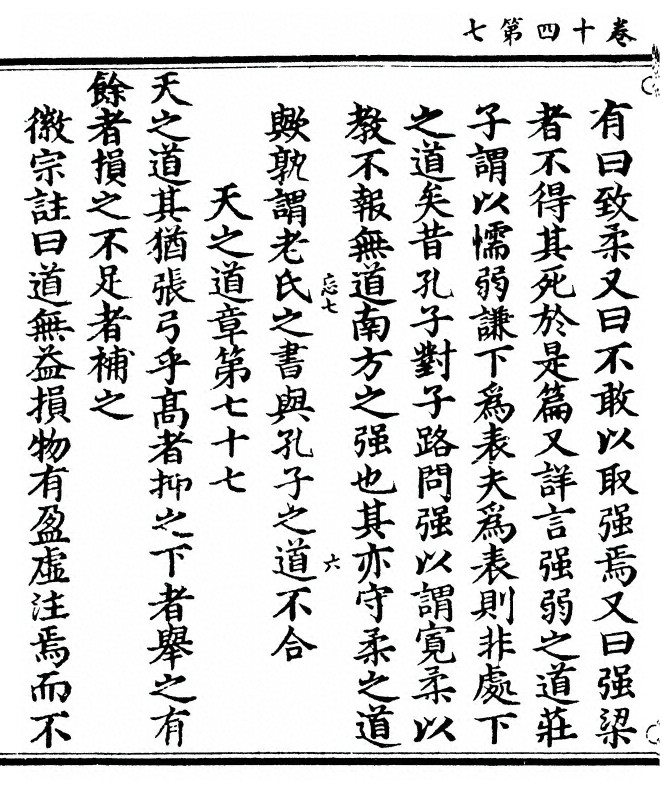 卷十四第七
有曰致柔又曰不敢以取强焉又曰强梁
者不得其死於是篇又詳言强弱之道莊
子謂以懦弱謙下爲表夫爲表則非處下
之道矣昔孔子對子路問强以謂寬柔以
教不報無道南方之强也其亦守柔之道
忘七
六
歟孰謂老氏之書與孔子之道不合
天之道章第七十七
天之道其猶張弓乎高者抑之下者舉之有
餘者損之不足者補之
徽宗註曰道無益損物有盈虛注焉而不